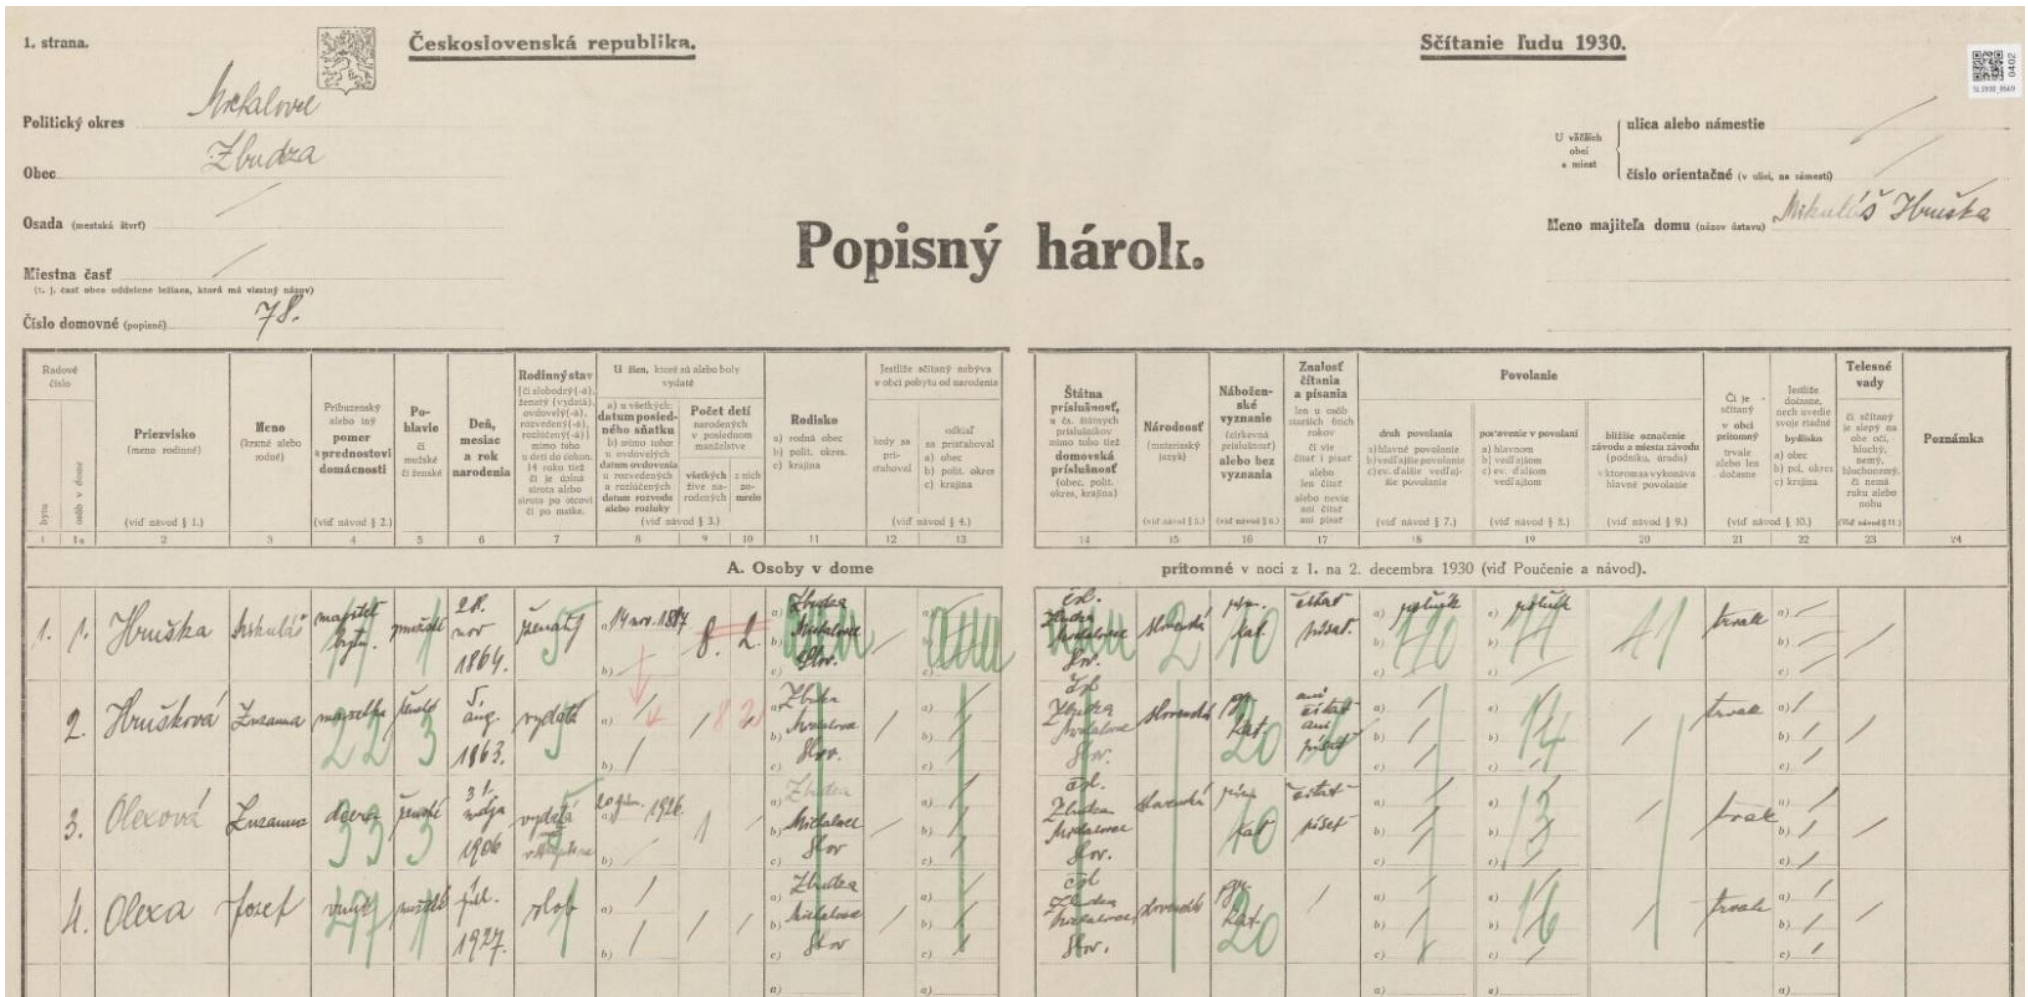 1. strana.
Československá republika.
Sčítanie ľudu 1930.
0402
Politický okres Michalovce
Obec Zbudza
Osada (mestská štvrť)
Miestna časť
(t. j. časť obce oddelene ležiaca, ktorá má vlastný názov)
Číslo domovné (popisné) 78.
Popisný hárok.
U väčších obcí a miest
ulica alebo námestie
číslo orientačné (v ulici, na námestí)
Meno majiteľa domu (názov ústavu) Mikuláš Hruška
Radové číslo
bytu
osôb v dome
Priezvisko
(meno rodinné)
(viď návod § 1.)
Meno
(krstné alebo rodné)
Príbuzenský alebo iný pomer k prednostovi domácnosti
(viď návod § 2.)
Pohlavie
či mužské či ženské
Deň, mesiac a rok narodenia
Rodinný stav
[či slobodný(-á), ženatý (vydatá), ovdovelý(-á), rozvedený(-á), rozlúčený(-á)] mimo toho u detí do dokon. 14 roku tiež či je úplná sirota alebo sirota po otcovi či po matke.
U žien, ktoré sú alebo boly vydaté
a) u všetkých: datum posledného sňatku
b) mimo toho: u ovdovelých datum ovdovenia u rozvedených a rozlúčených datum rozvodu alebo rozluky
Počet detí narodených v poslednom manželstve
všetkých žive narodených
z nich zomrelo
(viď návod § 3.)
Rodisko
a) rodná obec
b) polit. okres.
c) krajina
Jestliže sčítaný nebýva v obci pobytu od narodenia
kedy sa pristahoval
odkiaľ sa pristahoval
a) obec
b) polit. okres
c) krajina
(viď návod § 4.)
Štátna príslušnosť,
u čs. štátnych príslušníkov mimo toho tiež
domovská príslušnosť
(obec, polit. okres, krajina)
Národnosť
(materinský jazyk)
(viď návod § 5.)
Náboženské vyznanie
(cirkevná príslušnosť)
alebo bez vyznania
(viď návod § 6.)
Znalosť čítania a písania
len u osôb starších 6tich rokov
či vie čítať i písať
alebo len čítať
alebo nevie ani čítať ani písať
Povolanie
druh povolania
a) hlavné povolanie
b) vedľajšie povolanie
c) ev. ďalšie vedľajšie povolanie
(viď návod § 7.)
postavenie v povolaní
a) hlavnom
b) vedľajšom
c) ev. ďalšom vedľajšom
(viď návod § 8.)
bližšie označenie závodu a miesta závodu
(podniku, úradu)
v ktorom sa vykonáva hlavné povolanie
(viď návod § 9.)
Či je sčítaný v obci prítomný trvale alebo len dočasne
Jestliže dočasne, nech uvedie svoje riadné bydlisko
a) obec
b) pol. okres
c) krajina
(viď návod § 10.)
Telesné vady
či sčítaný je slepý na obe oči, hluchý, nemý, hluchonemý, či nemá ruku alebo nohu
(Viď návod § 11.)
Poznámka
1 1a 2 3 4 5 6 7 8 9 10 11 12 13 14 15 16 17 18 19 20 21 22 23 24
A. Osoby v dome prítomné v noci z 1. na 2. decembra 1930 (viď Poučenie a návod).
1. 1. Hruška Mikuláš majiteľ bytu. mužské 28. nov 1864. ženatý 14 nov. 1887 8. 2. Zbudza Michalovce Slov. čsl. Zbudza Michalovce Slov. slovenská kat. čítať písať. roľník roľník trvale
2. Hrušková Zuzanna manželka ženské 5. aug. 1863. vydatá 8 2 Zbudza Michalovce Slov. čsl. Zbudza Michalovce Slov. slovenská kat. ani čítať ani písať trvale
3. Olexová Zuzanna dcera ženské 31 mája 1906 vydatá 1926. 1 Zbudza Michalovce Slov čsl. Zbudza Michalovce Slov. slovenská kat čítať písať trvale
4. Olexa Jozef vnuk mužské júl. 1927. slob Zbudza Michalovce Slov čsl Zbudza Michalovce Slov. slovenská kat. trvale